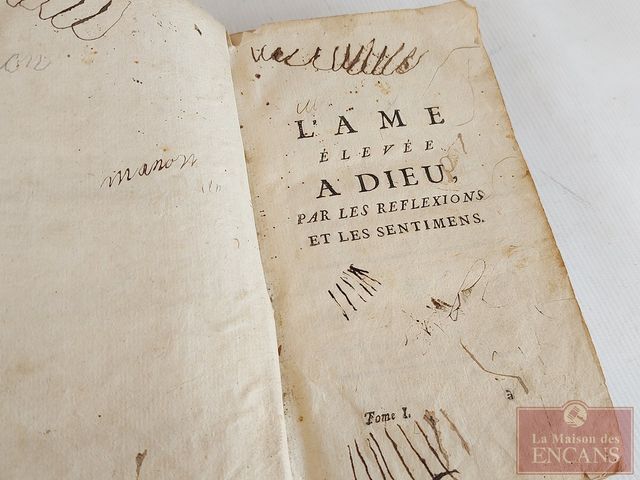 manon
L'AME
ÉLEVÉE
A DIEU,
PAR LES REFLEXIONS
ET LES SENTIMENS.
Tome I.
à
La Maison des
ENCANS